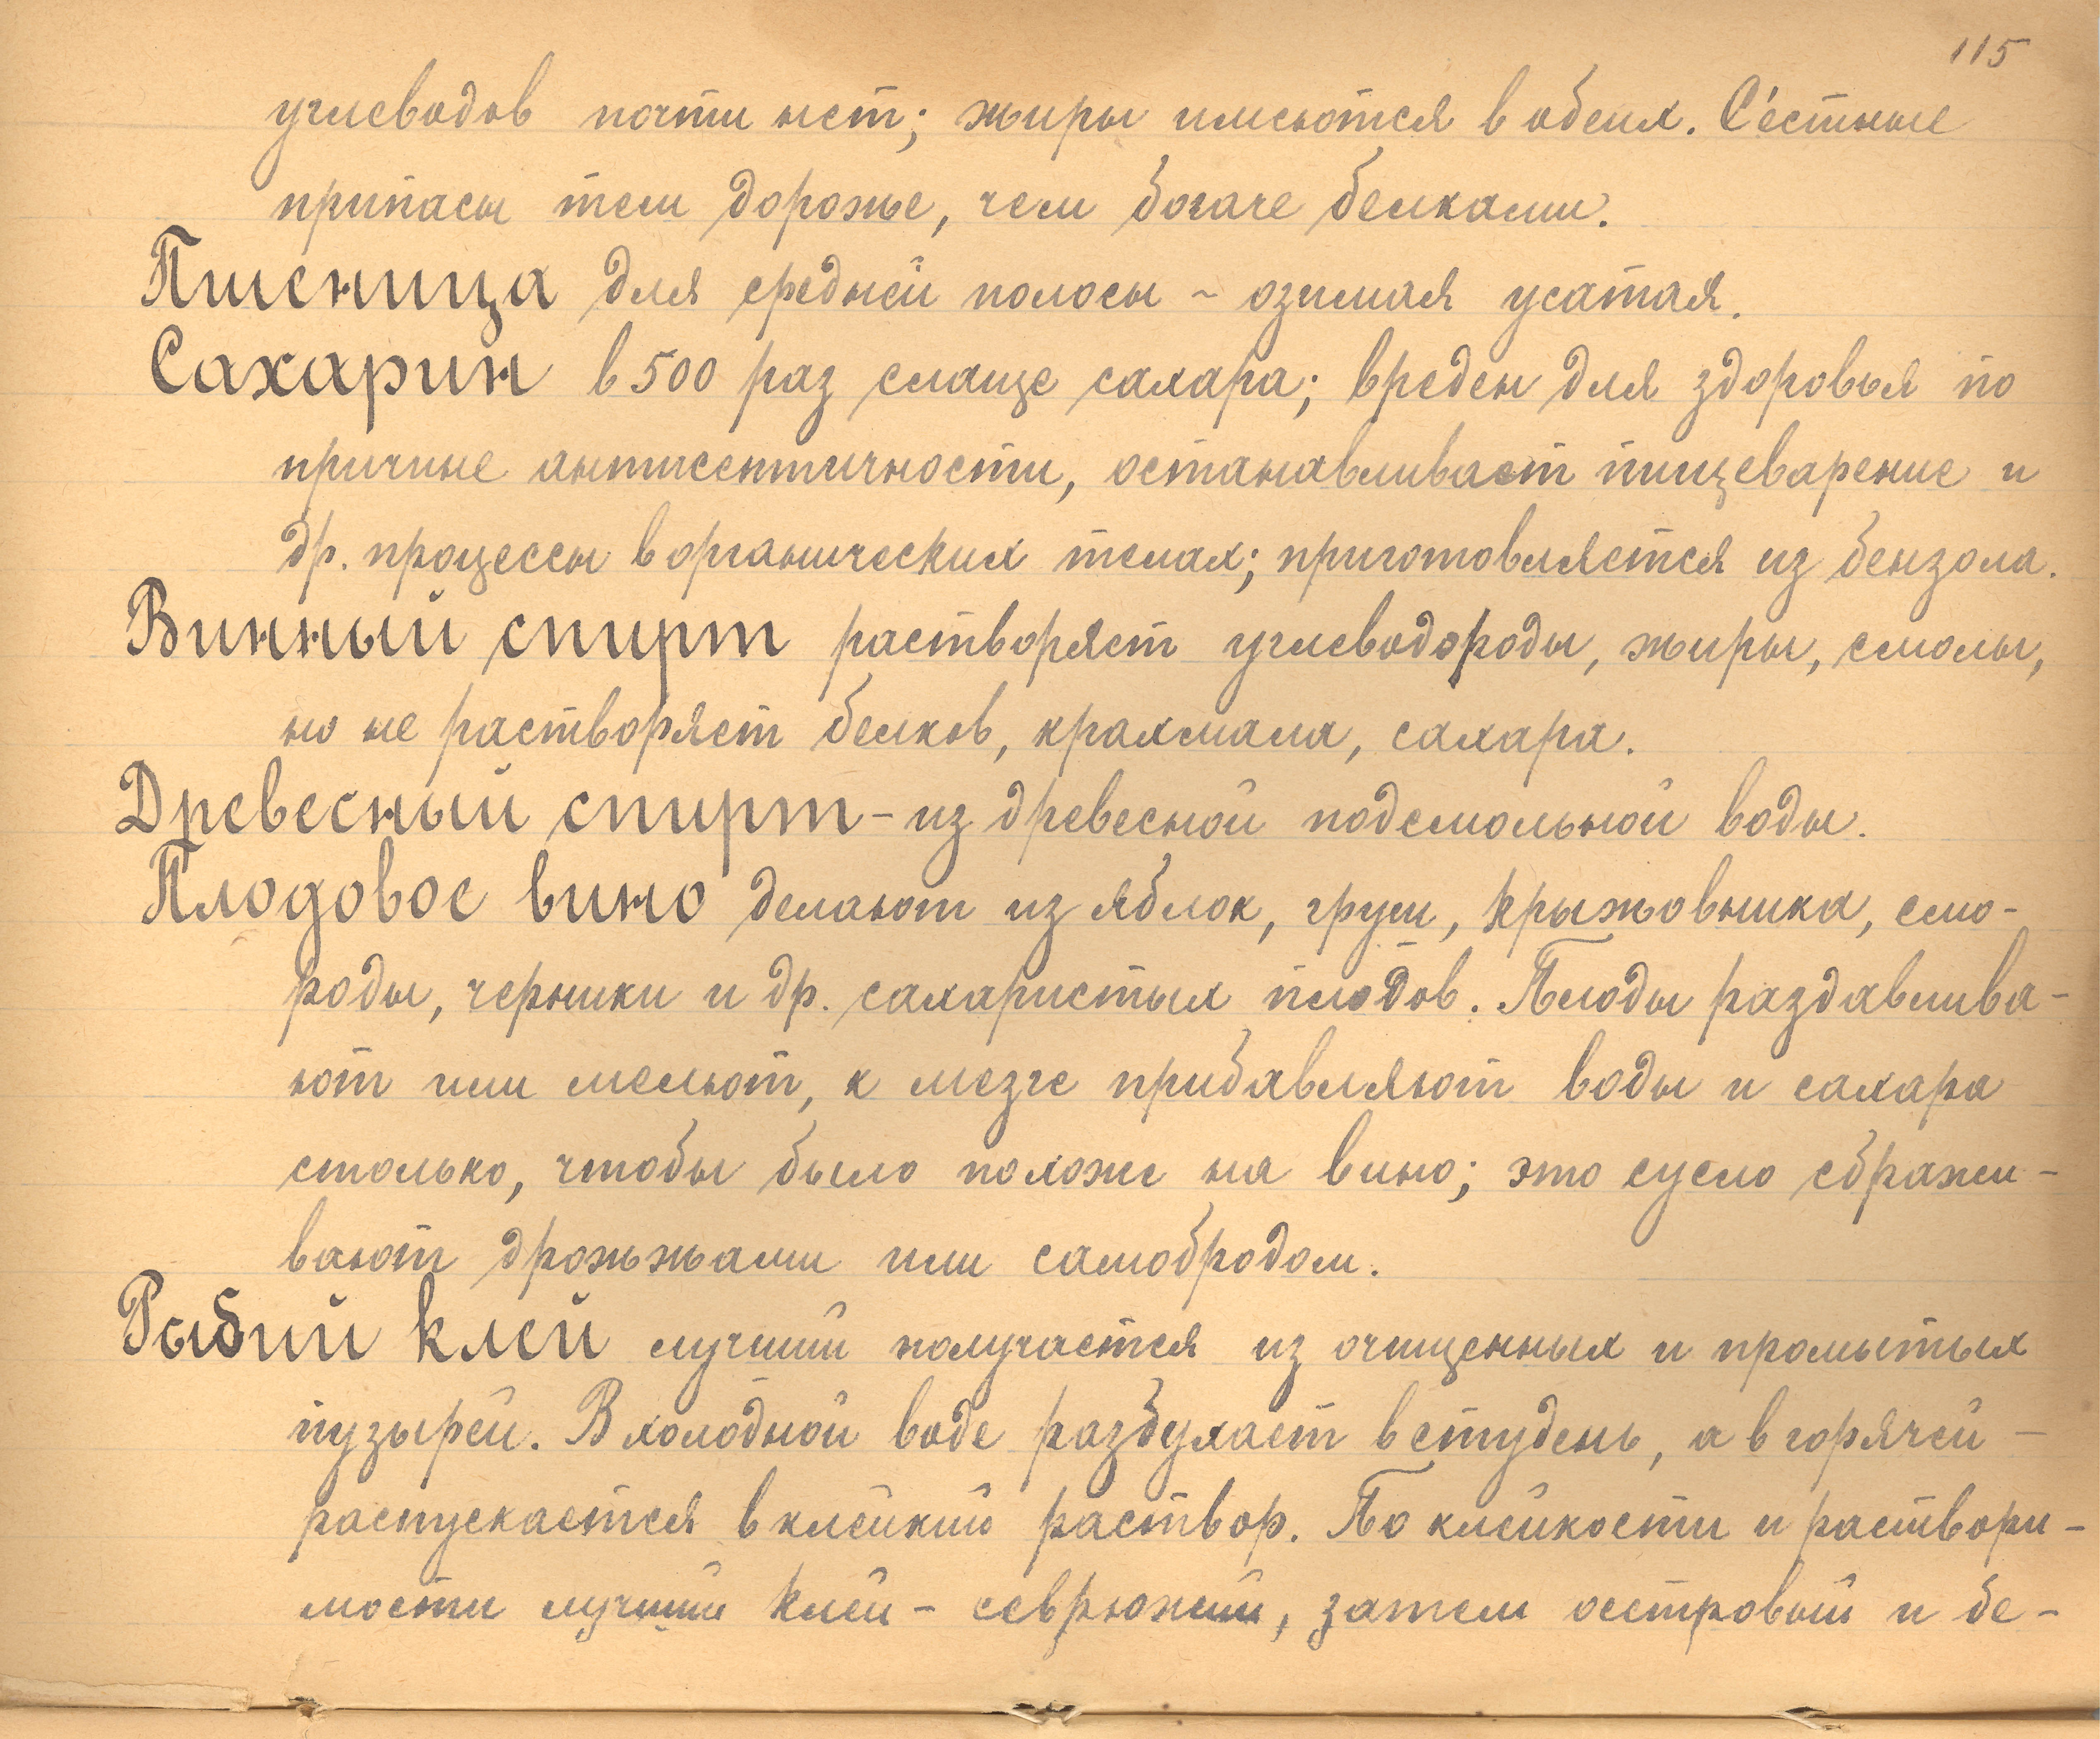 115
углеводов почти нет; жиры имеются в обеих. С'естные
припасы тем дороже, чем богаче белками.
Пшеница для средней полосы - озимая усатая.
Сахарин в 500 раз слаще сахара; вреден для здоровья по
причине антисептичности, останавливает пищеварение и
др. процессы в органических телах; приготовляется из бензола.
Винный спирт растворяет углеводороды, жиры, смолы,
но не растворяет белков, крахмала, сахара.
Древесный спирт - из древесной подсмольной воды.
Плодовое вино делают из яблок, груш, крыжовника, смо-
роды, черники и др. сахаристых плодов. Плоды раздавлива-
ют или мелют, к мезге прибавляют воды и сахара
столько, чтобы было похоже на вино; это сусло сбражи-
вают дрожжами или самобродом.
Рыбий клей лучший получается из очищенных и промытых
пузырей. В холодной воде разбухает в студень, а в горячей -
распускается в клейкий раствор. По клейкости и раствори-
мости лучший клей - севрюжий, затем островый и бе-